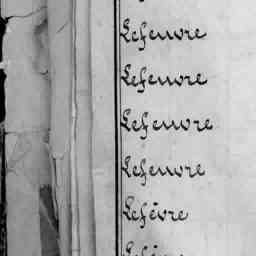 Lefeuvre
Lefeuvre
Lefeuvre
Lefeuvre
Lefèvre